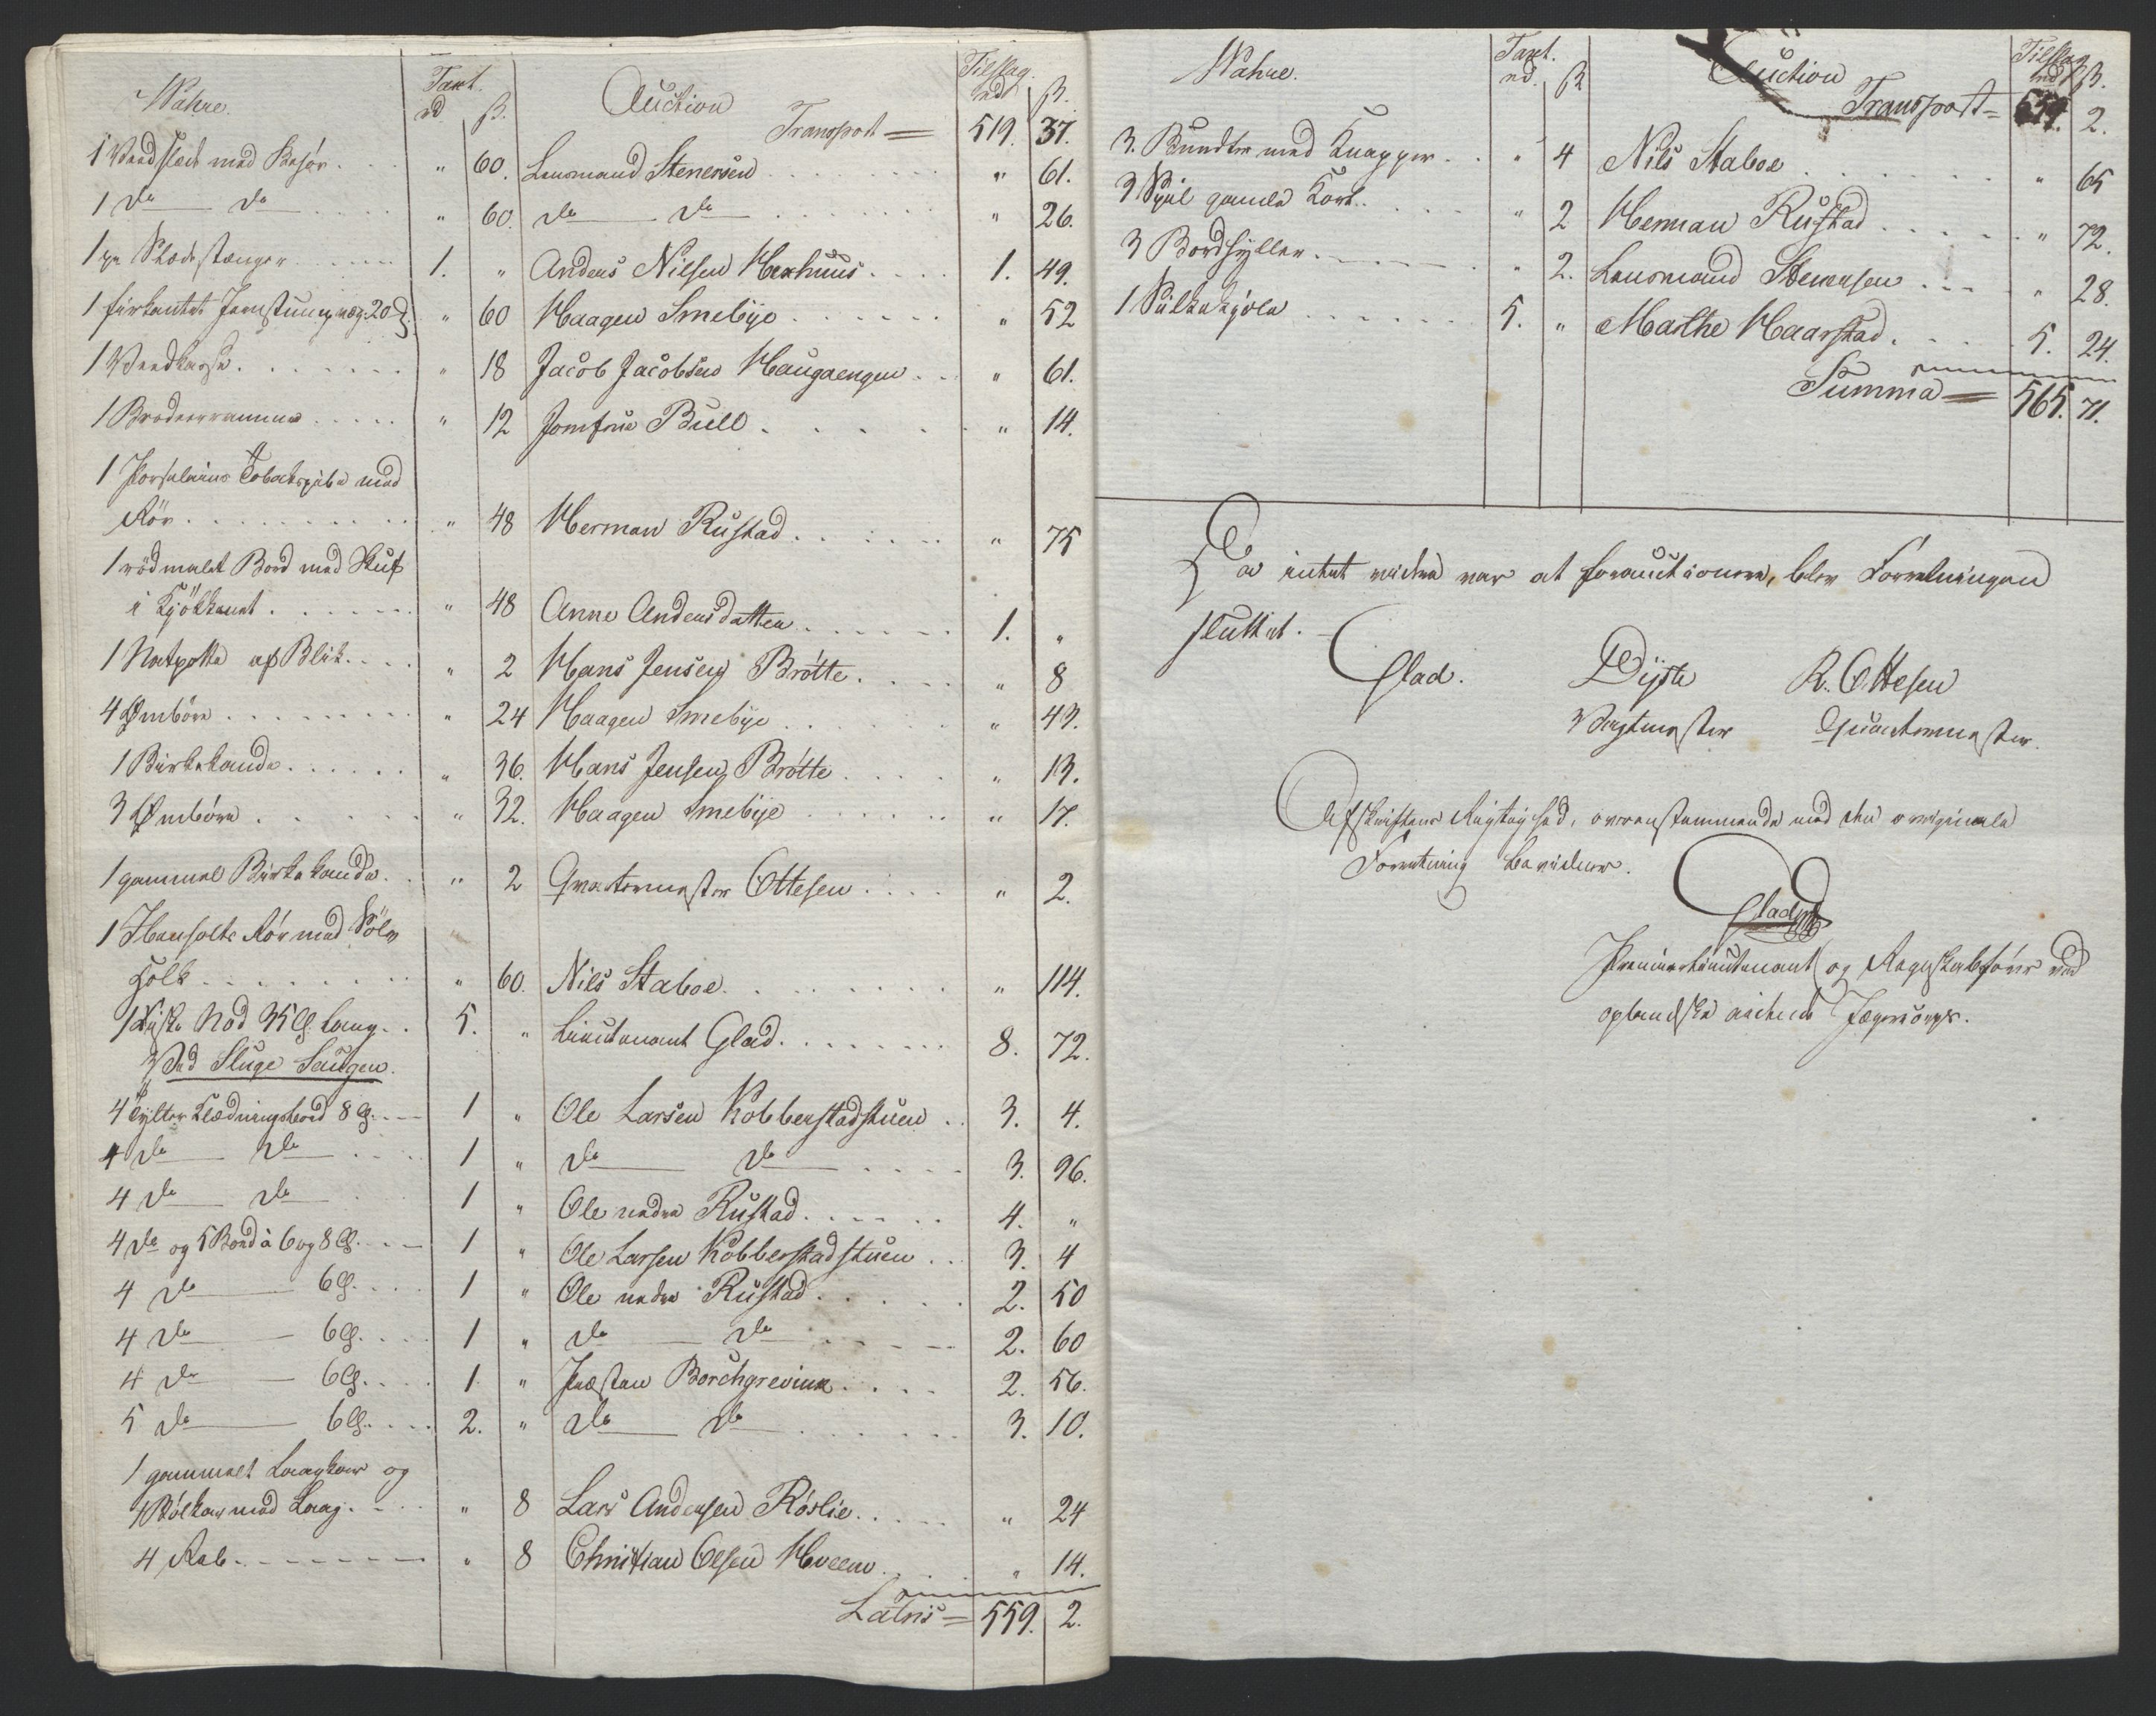 Wahre. Taxt. Auction Tilslag.
rd ß. rd ß.
Transport = 519. 37.
1 Vandslæde med . . . " 60. Lensmand Stenersen . . . " 61.
1 do — do . . . " 60. do — do . . . " 26.
1 pr Slædestænger . . . 1. " Anders Nilsen Herhuus . . . 1. 49.
1 firkantet Jernstang, 20 . " 60 Haagen Smebye . . . " 52
1 Vandkasse . . . " 18 Jacob Jacobsen Haugaengen . . " 61.
1 Broderramme . . . " 12 Jomfrue Bull . . . " 14.
1 Porselains Tobakspibe med
Rör . . . " 48 Herman Rustad . . . " 75
1 rödmalet Bord med Skuf
i Kjökkenet . . . " 48 Anne Andersdatter . . . 1. "
1 Natpotte af Blik . . . " 2 Hans Jensen Bròtte . . . " 8
4 Ømböre . . . " 24 Haagen Smebye . . . " 43.
1 Birkekande . . . " 36. Hans Jensen Bròtte . . . " 13.
3 Ømbóre . . . " 32. Haagen Smebye . . . " 17.
1 gammel Birkekande . . " 2 Qvartermester Ottesen . . . " 2.
1 Rór med Sölv
Holk . . . " 60. Nils Staboe . . . " 114.
1 Fiske Nod 35 lang . . 5. " Lieutenant Glad . . . 8. 72.
Ved Sluge Saugen.
4 Tylter Klædningsbord 8 . . . 1 " Ole Larsen Kobberstadstuen . . 3. 4.
4 do — do . . . 1 " do — do . . . 3. 96.
4 do — do . 1 " Ole nedre Rustad . . . 4. "
4 do og 5 Bord à 6 og 8 . . . 1 " Ole Larsen Kobberstadstuen . . 3. 4
4 do — 6 . . . 1 " Ole nedre Rustad . . . 2. 50
4 do — 6 . . . 1 " do — do . . . 2. 60
4 do — 6 . . . 1. " Præsten Borchgrevink . . . 2. 56.
5 do — 6 . . . 2. " do — do . . . 3. 10.
1 gammelt og
4 med Laag . . . " 8 Lars Andersen Róslie . . . " 24
4 . . . " 8 Christian Olsen Hveem . . . " 14.
Latris = 559. 2.
Wahre. Taxt. Auction Tilslag
rd. ß rd ß.
Transport = 559. 2.
3. Bundter med Knapper . . " 4 Nils Staboe . . . " 65
3 Spil gamle Kort . . . " 2 Herman Rustad . . . " 72.
3 Bordhyller . . . " 2. Lensmand Stenersen . . . " 28.
1 Silkekjole . . . 5. " Marthe Haarstad . . . 5. 24.
Summa = 565. 71.
Da intet videre var at forauctionere, blev Forretningen
sluttet. —
Glad. Dyste R. Ottesen
Vagtmester Qvartermester.
Afskriftens Rigtighed, overensstemmende med den originale
Forretning bevidner.
Glad
Premierlieutenant og Regnskabsförer ved
oplandske ridende Jægercorps.